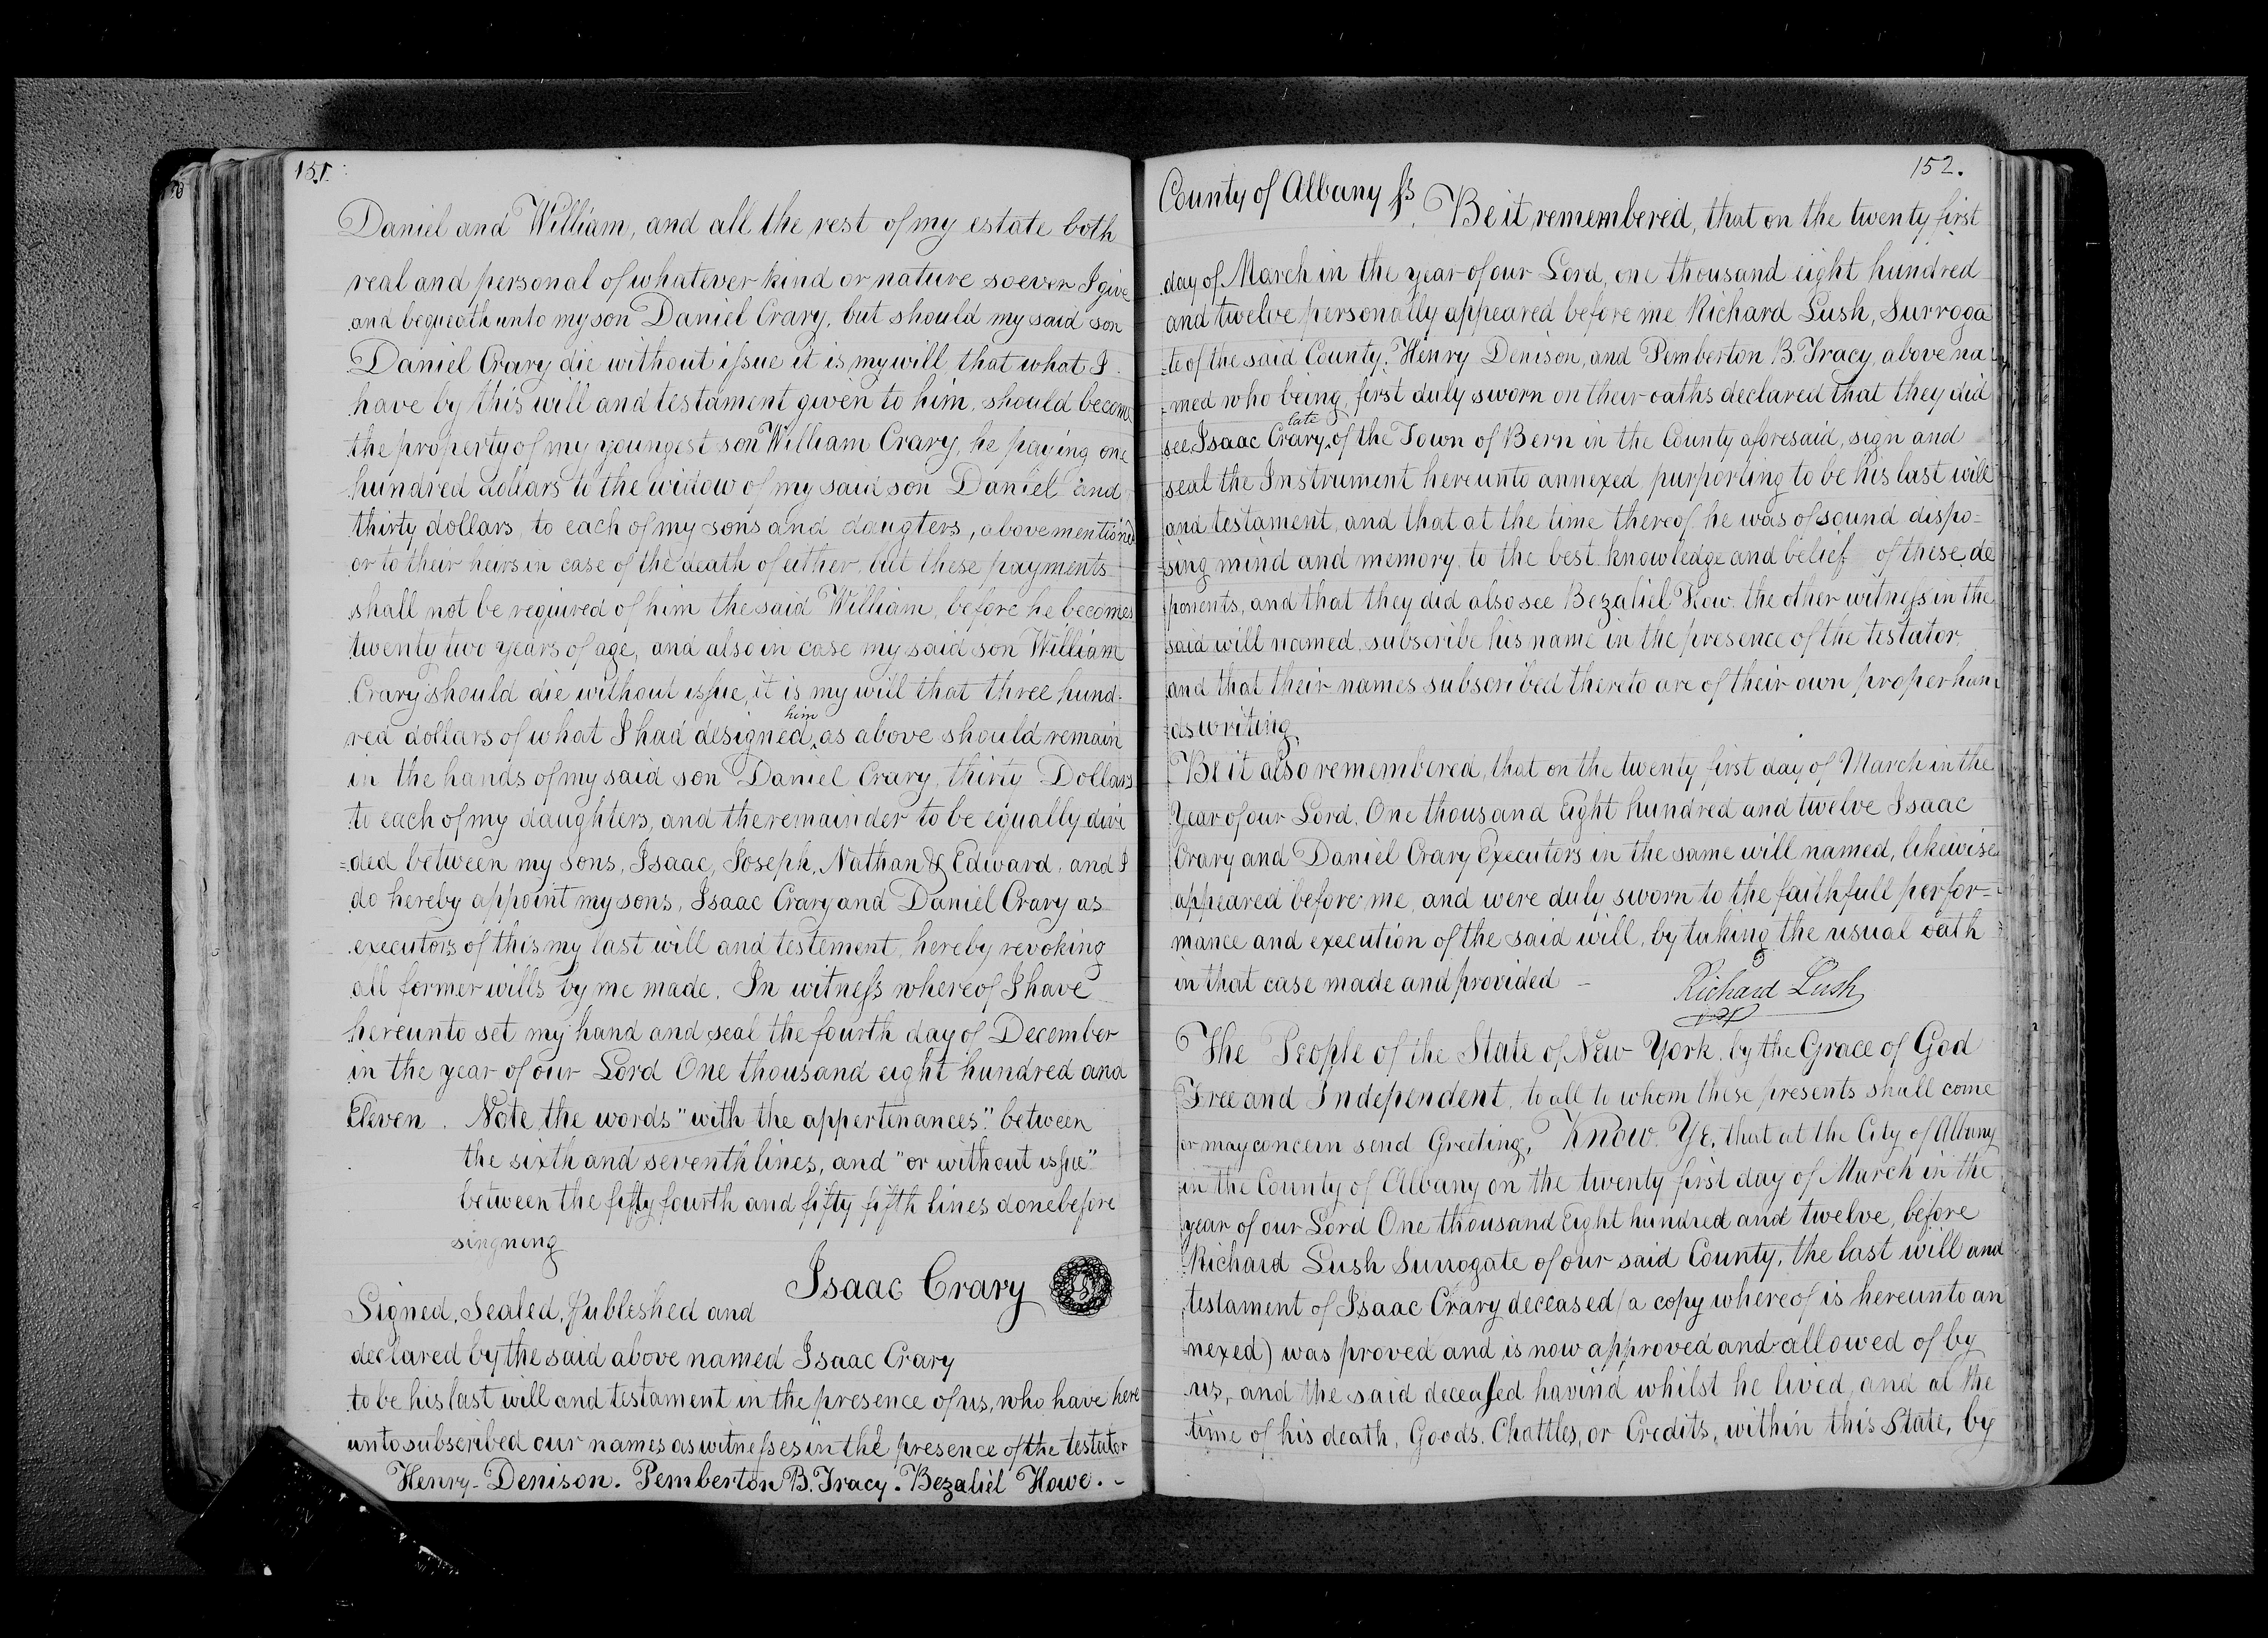 151.
Daniel and William, and all the rest of my estate both
real and personal of whatever kind or nature soever I give
and bequeath unto my son Daniel Crary, but should my said son
Daniel Crary die without issue it is my will, that what I
have by this will and testament given to him, should become
the property of my youngest son William Crary, he paying one
hundred dollars to the widow of my said son Daniel and
thirty dollars, to each of my sons and daugters, above mentioned
or to their heirs in case of the death of either, but these payments
shall not be required of him the said William, before he becomes
twenty two years of age, and also in case my said son William
Crary should die without issue, it is my will that three hund-
him
red dollars of what I had designed, as above should remain
in the hands of my said son Daniel Crary, thirty Dollars
to each of my daughters, and the remainder to be equally divi
=ded between my sons, Isaac, Joseph, Nathan & Edward, and I
do hereby appoint my sons, Isaac Crary and Daniel Crary as
executors of this my last will and testement, hereby revoking
all former wills by me made. In witness whereof I have
hereunto set my hand and seal the fourth day of December
in the year of our Lord One thousand eight hundred and
Eleven. Note, the words "with the appertenances" between
the sixth and seventh lines, and "or without issue"
between the fifty fourth and fifty fifth lines done before
singneng
Isaac Crary
Signed, Sealed, Publeshed and
declared by the said above named Isaac Crary
to be his last will and testament in the presence of us, who have here
unto subscribed our names as witnesses in the presence of the testator
Henry Denison. Pemberton B. Tracy. Bezaliel Howe. -
152.
County of Albany ss Be it remembered, that on the twenty first
day of March in the year of our Lord, one thousand eight hundred
and twelve personally appeared before me Richard Lush, Surroga
=te of the said County, Henry Denison, and Pemberton B. Tracy, above na=
=med who being first duly sworn on their oaths declared that they did
late
see Isaac Crary, of the Town of Bern in the County aforesaid, sign and
seal the Instrument hereunto annexed purporting to be his last will
and testament, and that at the time thereof he was of sound dispo=
=sing mind and memory, to the best knowledge and belief of these de
ponents, and that they did also see Bezaliel How the other witness in the
said will named, subscribe his name in the presence of the testator,
and that their names subscribed thereto are of their own proper han=
=dswriting.
Be it also remembered, that on the twenty first day of March in the
Year of our Lord, One thousand Eight hundred and twelve Isaac
Crary and Daniel Crary Executors in the same will named, likewise
appeared before me, and were duly sworn to the faithfull perfor=
mance and execution of the said will, by taking the usual oath
in that case made and provided -
Richard Lush
The People of the State of New York, by the Grace of God
Free and Independent, to all to whom these presents shall come
or may concern send Greeting, Know Ye, that at the City of Albany
in the County of Albany on the twenty first day of March in the
year of our Lord One thousand Eight hundred and twelve, before
Richard Lush Surrogate of our said County, the last will and
testament of Isaac Crary deceased (a copy whereof is hereunto an
nexed) was proved and is now approved and allowed of by
us, and the said deceased havind whilst he lived, and at the
time of his death, Goods, Chattles, or Credits, within this State, by